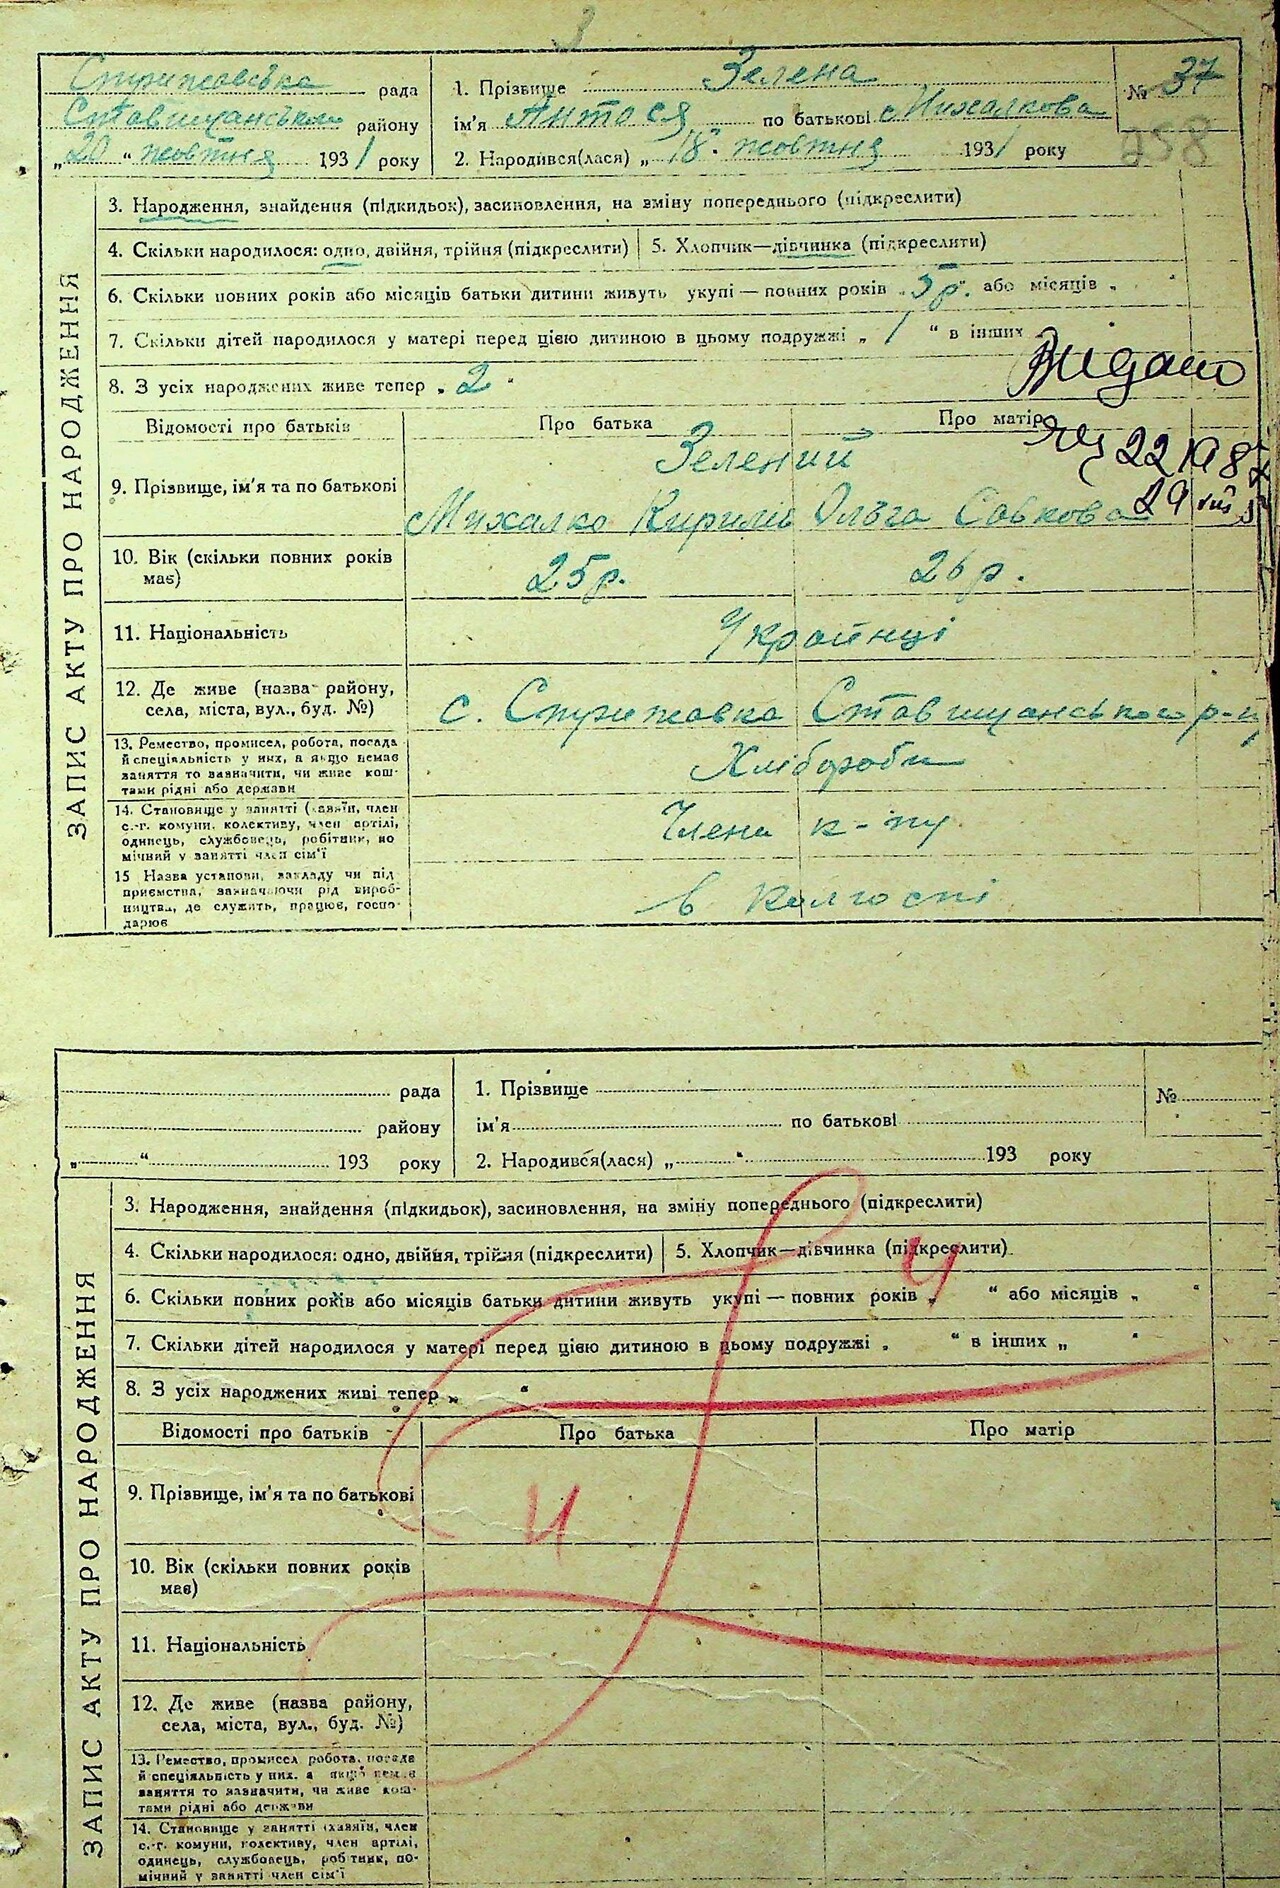 3
Стрижовська рада
Ставищанського району
„20" жовтня 1931 року
1. Прізвище Зелена
ім'я Антося по батькові Михалкова
2. Народився(лася) „18" жовтня 1931 року
№ 37
258
ЗАПИС АКТУ ПРО НАРОДЖЕННЯ
3. Народження, знайдення (підкидьок), засиновлення, на зміну попереднього (підкреслити)
4. Скільки народилося: одно, двійня, трійня (підкреслити) 5. Хлопчик—дівчинка (підкреслити)
6. Скільки повних років або місяців батьки дитини живуть укупі — повних років „5р." або місяців „ "
7. Скільки дітей народилося у матері перед цією дитиною в цьому подружжі „1" в інших
8. З усіх народжених живе тепер „2"
Видано
22 198
29
Відомості про батьків Про батька Про матір
Зелений
9. Прізвище, ім'я та по батькові Михалко Кирилів Ольга Савкова
10. Вік (скільки повних років має) 25р. 26р.
11. Національність Українці
12. Де живе (назва району, села, міста, вул., буд. №) с. Стрижовка Ставищанського р-ну
13. Ремество, промисел, робота, посада
й спеціяльність у них, а якщо немає
заняття то зазначити, чи живе кош-
тами рідні або держави
Хлібороби
14. Становище у занятті (хазяїн, член
с.-г. комуни, колективу, член артілі,
одинець, службовець, робітник, по
мічний у занятті член сім'ї
Члени к-пу
15 Назва установи, закладу чи під
приємства, зазначаючи рід вироб-
ництва, де служить, працює, госпо-
дарює
в колгоспі
рада
району
„ " 193 року
1. Прізвище
ім'я по батькові
2. Народився(лася) „ " 193 року
№
ЗАПИС АКТУ ПРО НАРОДЖЕННЯ
3. Народження, знайдення (підкидьок), засиновлення, на зміну попереднього (підкреслити)
4. Скільки народилося: одно, двійня, трійня (підкреслити) 5. Хлопчик—дівчинка (підкреслити)
6. Скільки повних років або місяців батьки дитини живуть укупі — повних років „ " або місяців „ "
7. Скільки дітей народилося у матері перед цією дитиною в цьому подружжі „ " в інших „ "
8. З усіх народжених живі тепер „ "
Відомості про батьків Про батька Про матір
9. Прізвище, ім'я та по батькові
10. Вік (скільки повних років
має)
11. Національність
12. Де живе (назва району,
села, міста, вул., буд. №)
13. Ремество, промисел робота, посада
й спеціяльність у них. а якщо немає
заняття то зазначити, чи живе кош-
тами рідні або держави
14. Становище у занятті (хазяїн, член
с.-г. комуни, колективу, член артілі,
одинець, службовець, робітник, по-
мічний у занятті член сім'ї